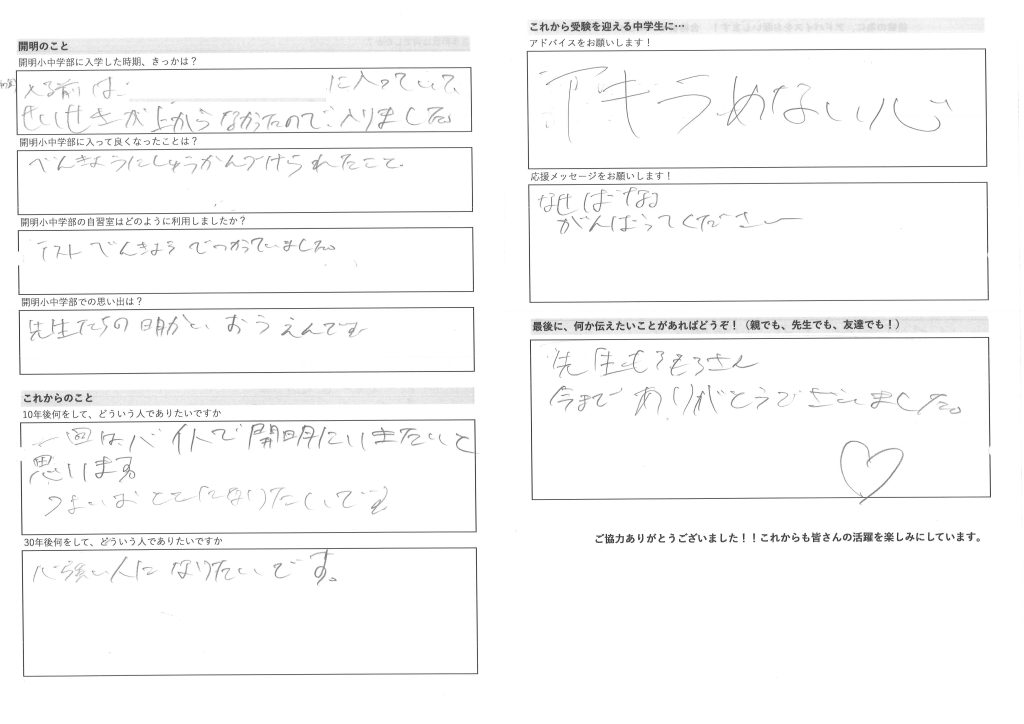 開明のこと
開明小中学部に入学した時期、きっかは？
入る前は、 に入っていて、
せいせきが上がらなかったので入りました。
開明小中学部に入って良くなったことは？
べんきょうにしゅうかんづけられたこと。
開明小中学部の自習室はどのように利用しましたか？
テストべんきょうでつかっていました。
開明小中学部での思い出は？
先生たちの
これからのこと
10年後何をして、どういう人でありたいですか
一回はバイトで開明にいきたいと
思います
つよいおとこになりたいです
30年後何をして、どういう人でありたいですか
心強い人になりたいです。
これから受験を迎える中学生に…
アドバイスをお願いします！
アキラめない心
応援メッセージをお願いします！
なせばなる
がんばってくださいー
最後に、何か伝えたいことがあればどうぞ！（親でも、先生でも、友達でも！）
先生
今までありがとうございました。
ご協力ありがとうございました！！これからも皆さんの活躍を楽しみにしています。